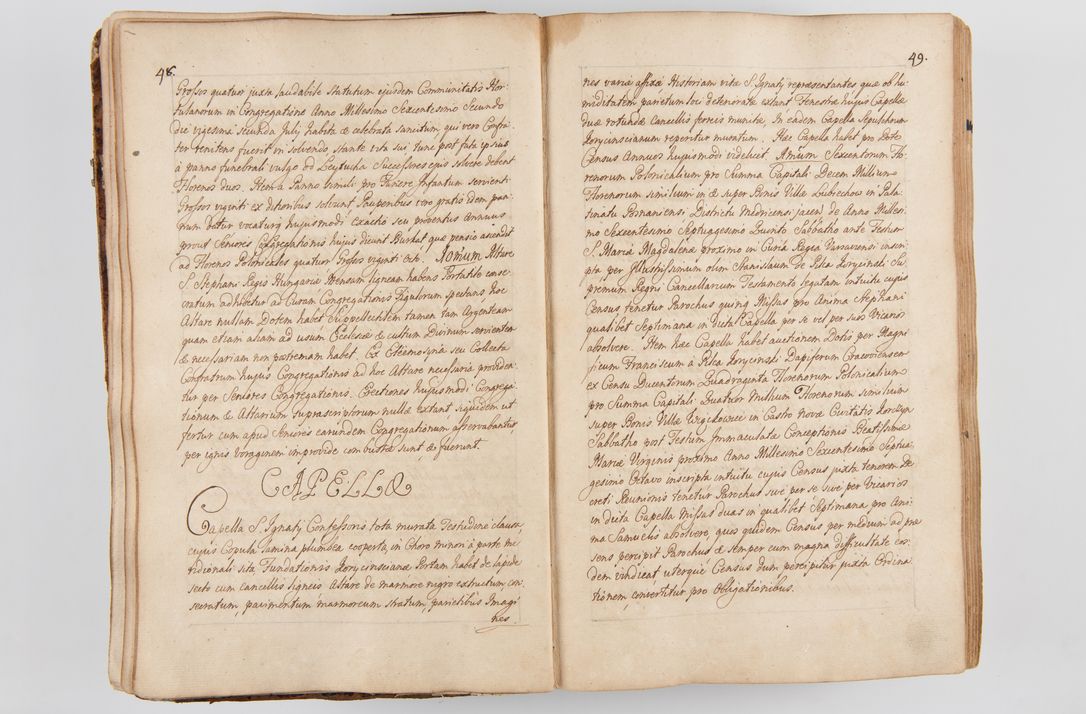 48.
Grossos quatuor juxta laudabile statutum ejusdem Communitatis Hor-
tulanorum in Congregatione Anno Millesimo Sexcentesimo Secundo
die vigesima secunda Julij habita & celebrata sancitum, qui vero Confra-
ter renitens fuerit in solvendo, stante vita sua tunc post fata ipsius
à panno funebrali vulgo od Leytucha Successores ejus solvere debent
Florenos duos. Item à Panno simili pro Funere Infantum servienti
Grossos viginti ex ditioribus solvunt Pauperibus vero gratis idem pan-
num datur vocaturq hujusmodi exactio seu proventus annuus
prout Seniores Congregationis hujus dicunt Burkal quæ pensio ascendit
ad Florenos Polonicales quatuor Grossos viginti octo. Nonum Altare
S. Stephani Regis Hungariæ Mensam ligneam habens Portatile conse-
cratum adhibetur ad Curam Congregationis Figulorum spectans, hoc
Altare nullam Dotem habet Suppellectilem tamen tam Argenteam
quam etiam aliam ad usum Ecclesiæ & cultum Divinum servientem
& necessariam non postremam habet. Ex Eleemosyna seu Collecta
Confratrum hujus Congregationis ad hoc Altare necessaria providen-
tur per Seniores Congregationis. Erectiones hujusmodi Congrega-
tionum & Altarium suprascriptorum nullæ extant siquidem ut
fertur cum apud Seniores earundem Congregationum asservabantur
per ignis voraginem improvide combustæ sunt, & fuerunt.
CAPELLÆ
Capella S. Ignatij Confessoris tota murata Testudine clausa,
cujus Copula lamina plumbea cooperta, in Choro minori à parte me-
ridionali sita Fundationis Korycinscianæ Portam habet de lapide
secto cum cancellis ligneis Altare de marmore nigro extructum con-
secratum pavimentum marmoreum stratum, parietibus Imagi-
nes
49.
nes variæ affixæ Historiam vitæ S. Ignatij repræsentantes quæ ob hu-
miditatem parietum seu deteriorate extant Fenestræ hujus Capellæ
duæ rotundæ cancellis ferreis munitæ. In eadem Capella Sepulchrum
Korycinscianum reperitur muratum. Hæc Capella habet pro Dote
Census Annuos hujusmodi videlicet. Primum Sexcentorum Flo-
renorum Polonicalium pro Summa Capitali Decem Millium
Florenorum similium in & super Bonis Villæ Lubrechow in Pala-
tinatu Posnaniensi Districtu Medricensi jacen: de Anno Millesi-
mo Sexcentesimo Septuagesimo Quinto Sabbatho ante Festum
S. Mariæ Magdalenæ proximo in Curia Regia Varsaviensi inscri-
pta per Illustrissimum olim Stanislaum de Pilca Korycinski Su-
premum Regni Cancellarium Testamento legatam intuitu cujus
Census tenetur Parochus quinq Missas pro Anima Stephani
qualibet Septimana in dicta Capella per se vel per suos Vicarios
absolvere. Item hæc Capella habet auctionem Dotis per Magni-
ficum Franciscum à Pilca Korycinski Dapiferum Cracoviensem
ex Censu Ducentorum Quadraginta Florenorum Polonicalium
pro Summa Capitali Quatuor Millium Florenorum similium
super Bonis Villæ in Castro Novæ Civitatis Korczyn
Sabbatho post Festum Immaculatæ Conceptionis Beatissimæ
Mariæ Virginis proximo Anno Millesimo Sexcentesimo Septua-
gesimo Octavo inscripta intuitu cujus Census juxta tenorem De-
creti Reunionis tenetur Parochus sive per se sive per Vicarios
in dicta Capella Missas duas in qualibet Septimana pro Ani-
ma Samuelis absolvere, quos quidem Census per medium ad præ-
sens percipit Parochus & semper cum magna difficultate eos-
dem vindicat uterque Census dum percipitur juxta Ordina-
tionem, convertitur pro Obligationibus.